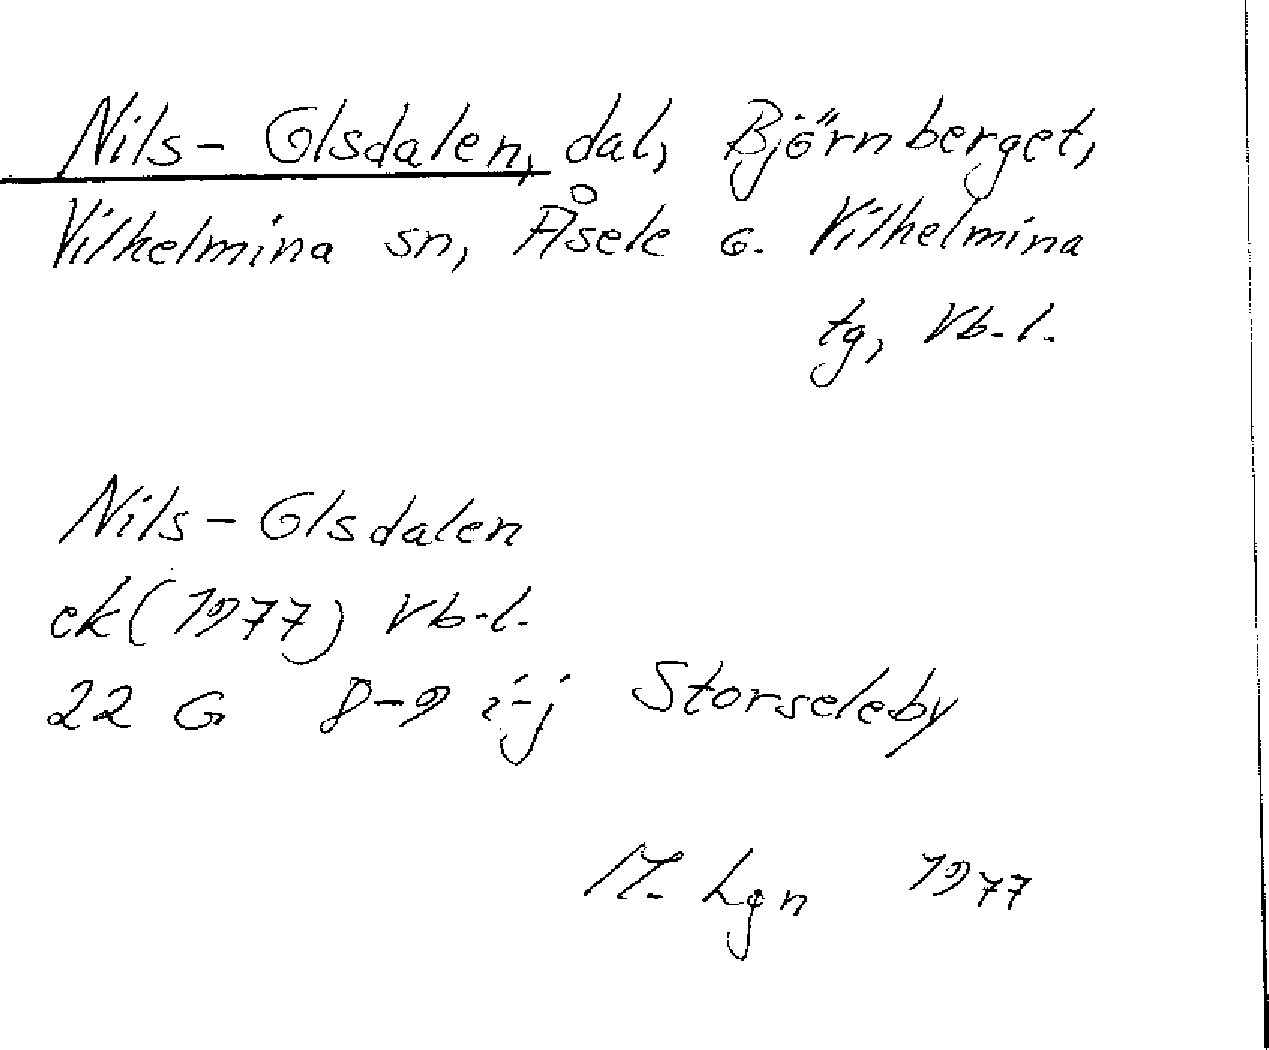 Nils-Olsdalen, dal, Björnberget,
Vilhelmina sn, Åsele o. Vilhelmina
tg, Vb-l.
Nils-Olsdalen
ek (1977) Vb-l.
22 G 8-9 i-j Storseleby
M. Lgn 1977